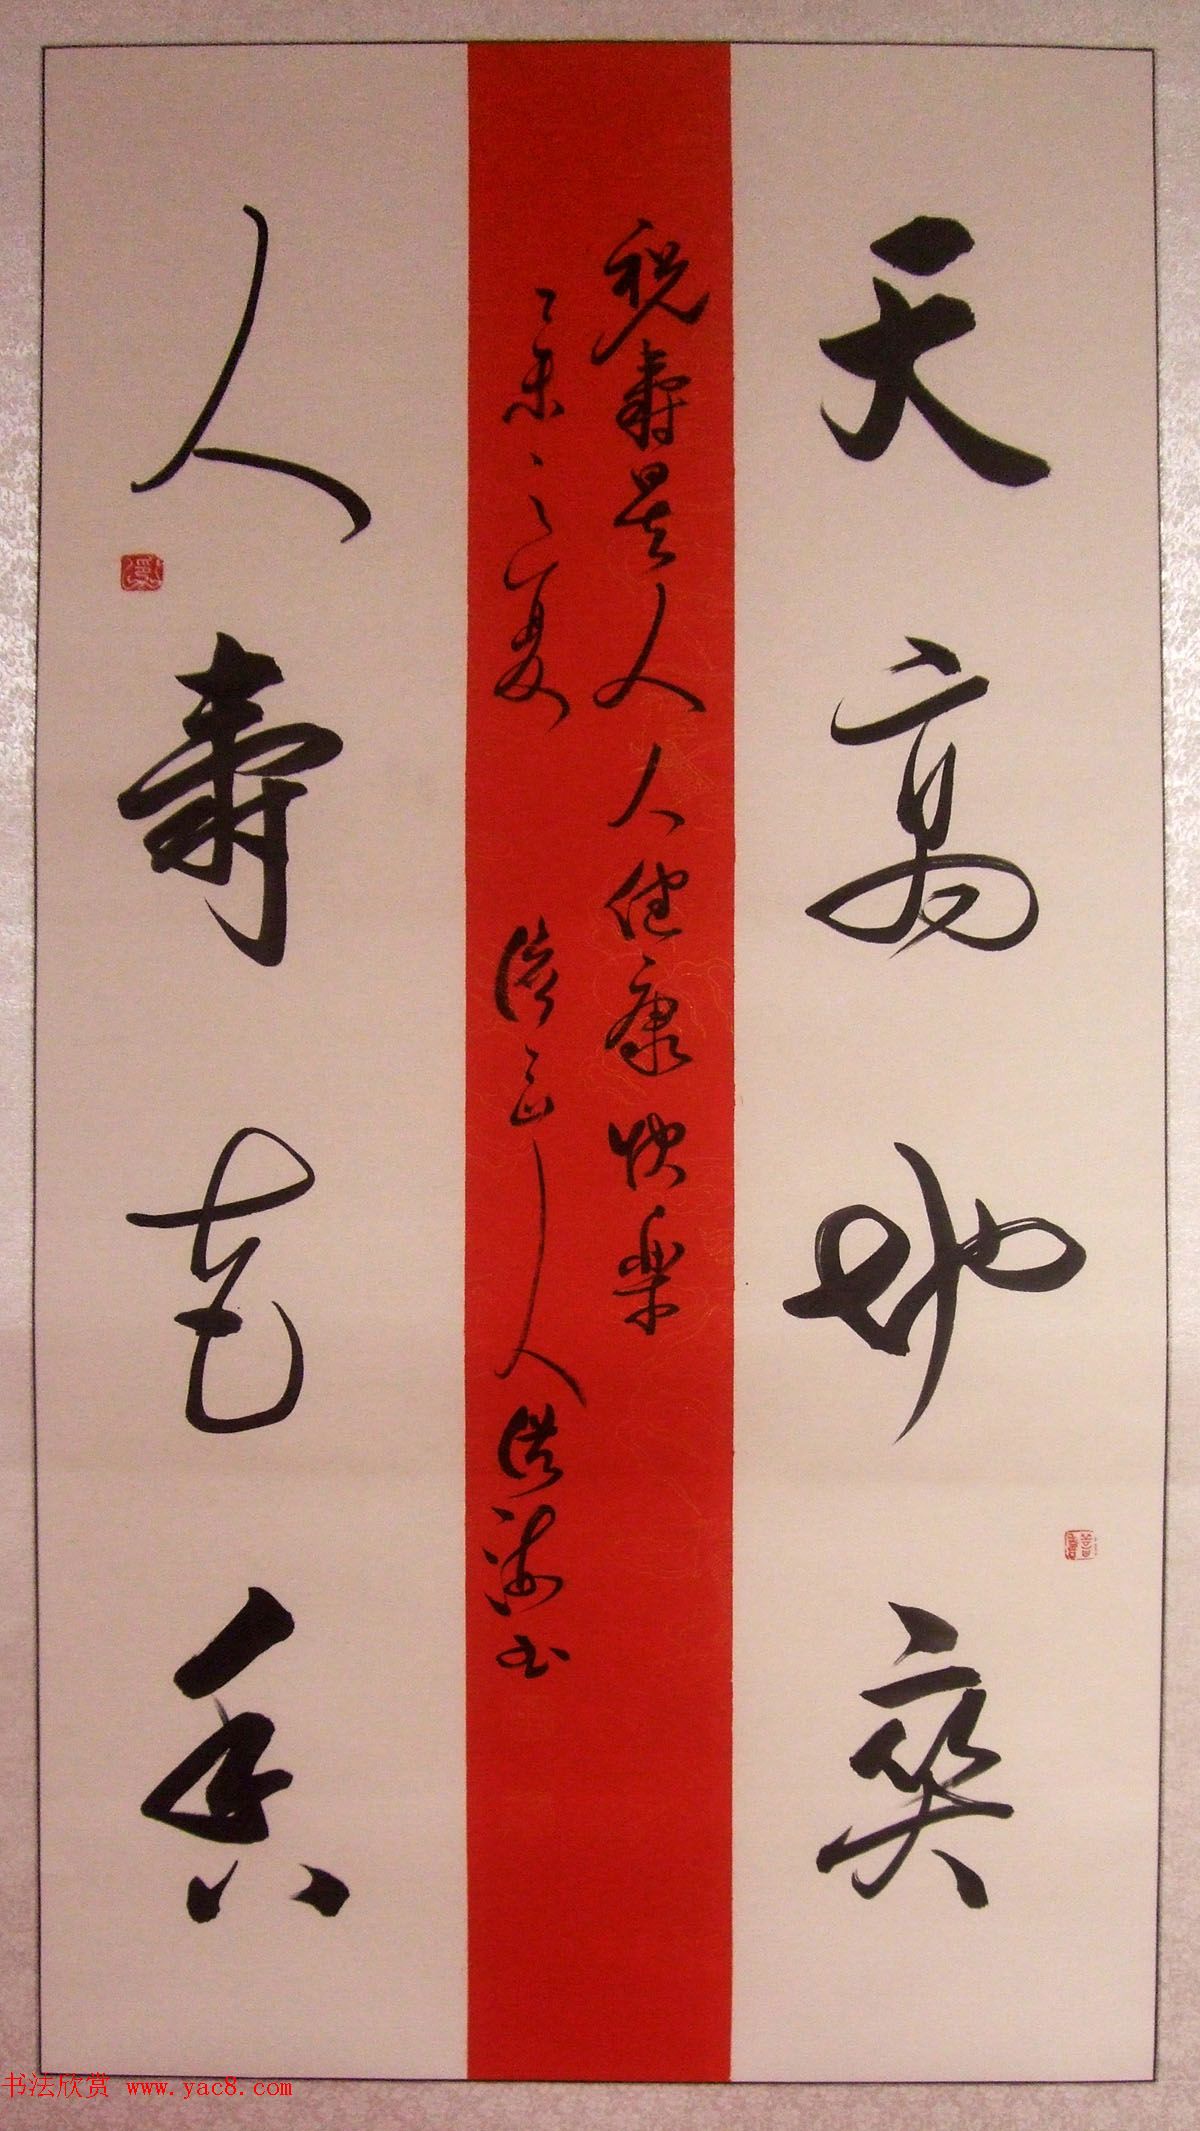 天高地奕
祝寿星人人健康快乐
未之夏
山人洪
书
人寿花香
书法欣赏 www.yac8.com